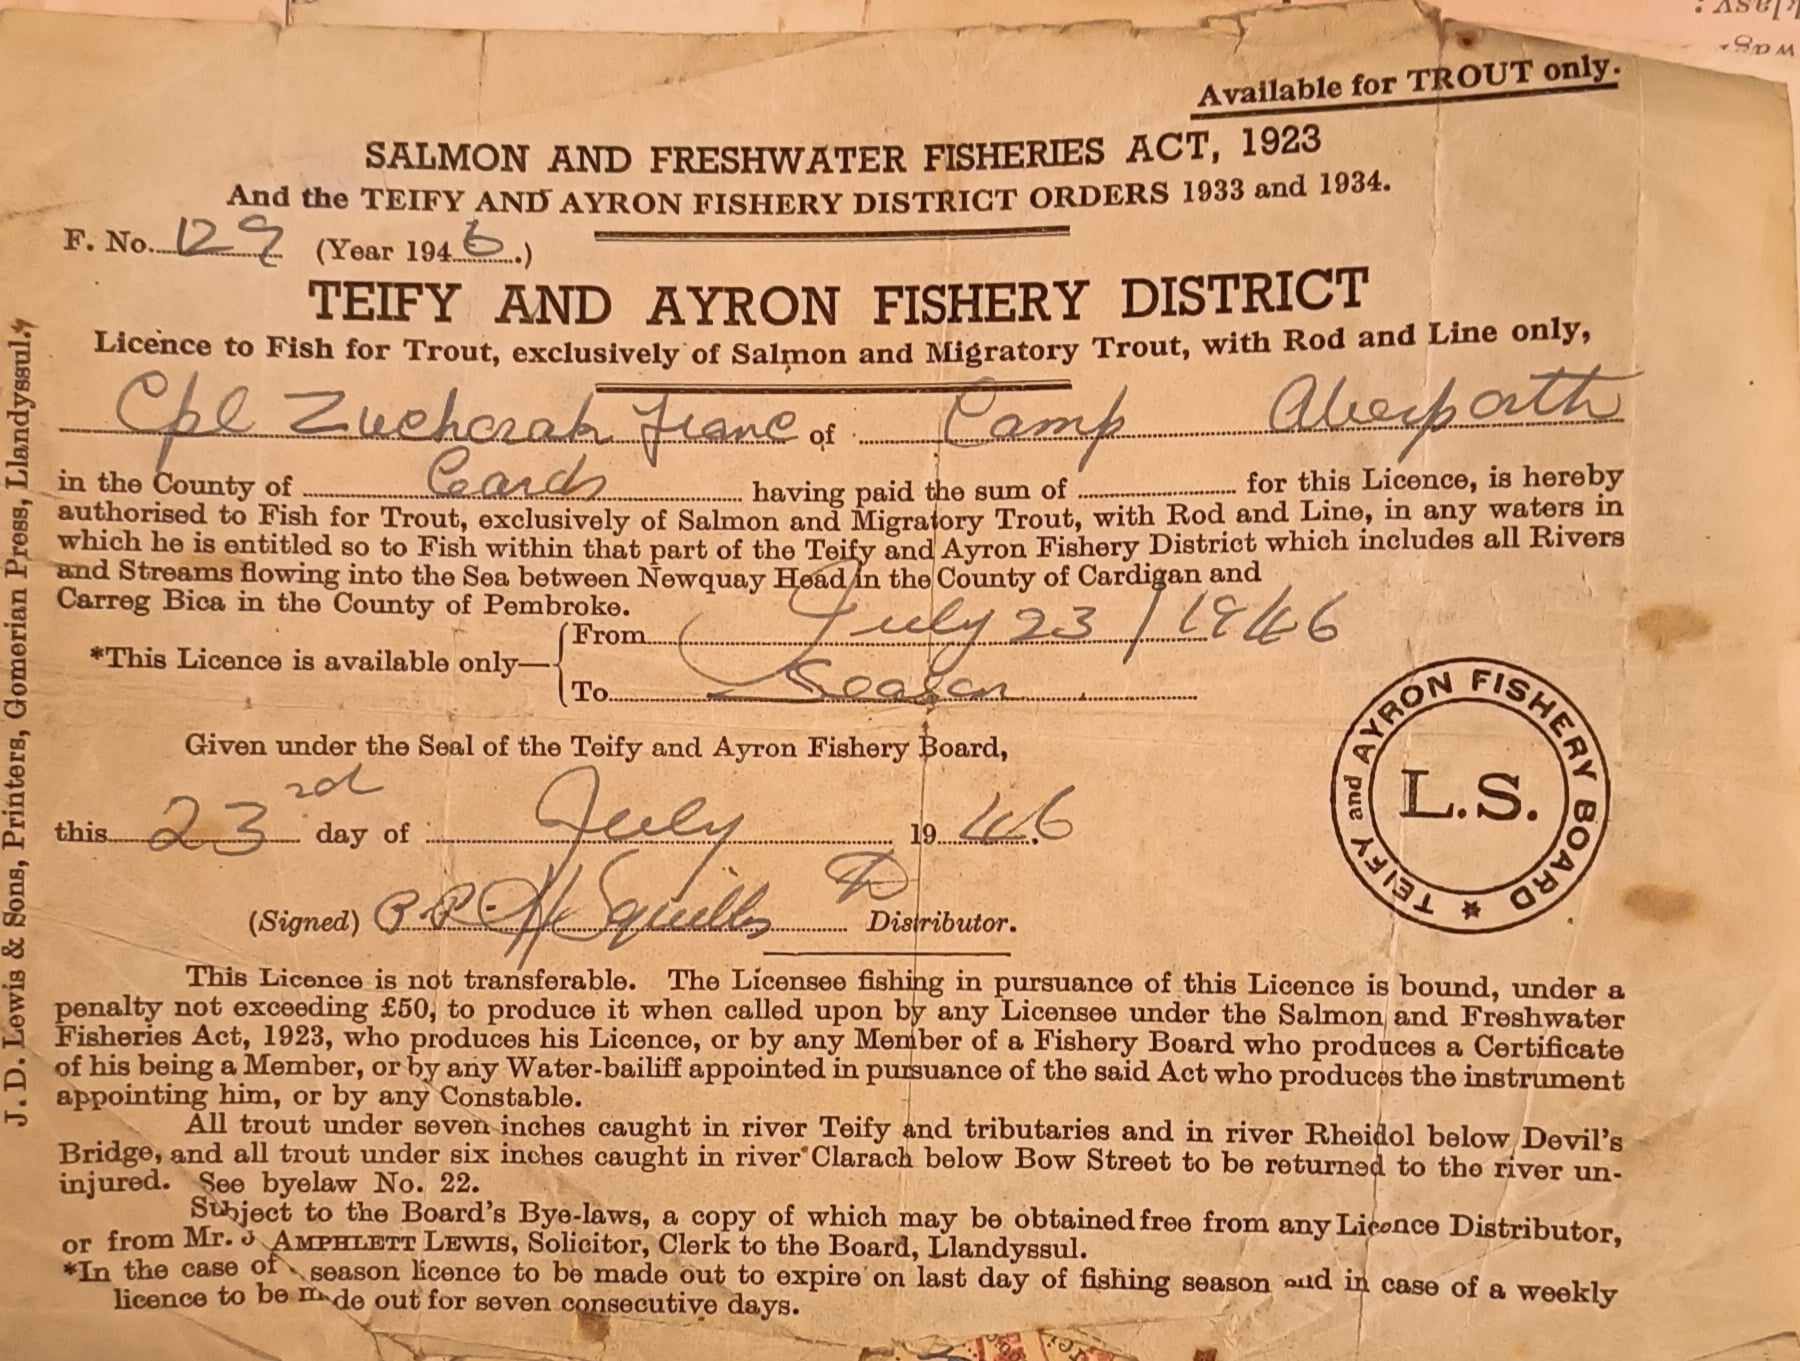 Available for TROUT only.
SALMON AND FRESHWATER FISHERIES ACT, 1923
And the TEIFY AND AYRON FISHERY DISTRICT ORDERS 1933 and 1934.
F. No. 129 (Year 1946.)
TEIFY AND AYRON FISHERY DISTRICT
Licence to Fish for Trout, exclusively of Salmon and Migratory Trout, with Rod and Line only,
Cpl Zucherah Franc of Camp Aberporth
in the County of Cards having paid the sum of for this Licence, is hereby
authorised to Fish for Trout, exclusively of Salmon and Migratory Trout, with Rod and Line, in any waters in
which he is entitled so to Fish within that part of the Teify and Ayron Fishery District which includes all Rivers
and Streams flowing into the Sea between Newquay Head in the County of Cardigan and
Carreg Bica in the County of Pembroke.
*This Licence is available only—
From July 23/1946
To Season
Given under the Seal of the Teify and Ayron Fishery Board,
this 23rd day of July 1946.
(Signed) P.P. H Squibbs Distributor.
TEIFY and AYRON FISHERY BOARD
L.S.
This Licence is not transferable. The Licensee fishing in pursuance of this Licence is bound, under a
penalty not exceeding £50, to produce it when called upon by any Licensee under the Salmon and Freshwater
Fisheries Act, 1923, who produces his Licence, or by any Member of a Fishery Board who produces a Certificate
of his being a Member, or by any Water-bailiff appointed in pursuance of the said Act who produces the instrument
appointing him, or by any Constable.
All trout under seven inches caught in river Teify and tributaries and in river Rheidol below Devil's
Bridge, and all trout under six inches caught in river Clarach below Bow Street to be returned to the river un-
injured. See byelaw No. 22.
Subject to the Board's Bye-laws, a copy of which may be obtained free from any Licence Distributor,
or from Mr. J AMPHLETT LEWIS, Solicitor, Clerk to the Board, Llandyssul.
*In the case of season licence to be made out to expire on last day of fishing season and in case of a weekly
licence to be made out for seven consecutive days.
J. D. Lewis & Sons, Printers, Gomerian Press, Llandyssul.